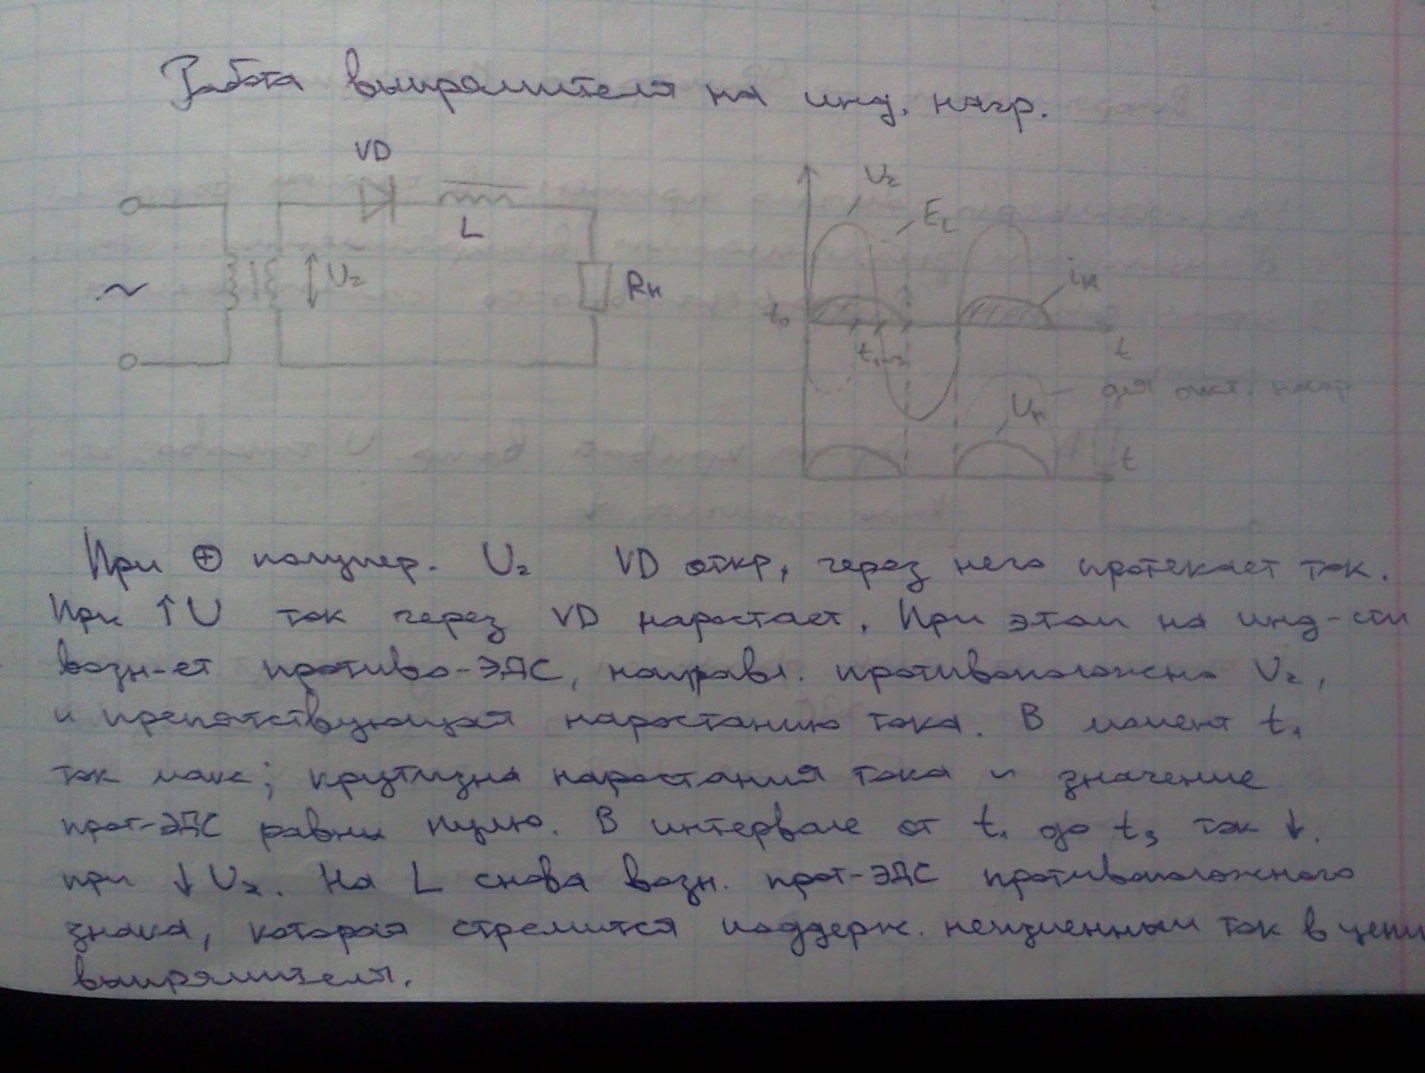 Работа выпрямителя на инд. нагр.
VD
L
U₂
Rн
~
U₂
EL
iн
t₀
t₁
t
для акт. нагр
Uн
t
При ⊕ полупер. U₂ VD откр, через него протекает ток.
При ↑U ток через VD наростает. При этом на инд-сти
возн-ет противо-ЭДС, направл. противоположно U₂,
и препятствующая наростанию тока. В момент t₁
ток макс; крутизна наростания тока и значение
прот-ЭДС равны нулю. В интервале от t₁ до t₃ ток ↓.
при ↓U₂. На L снова возн. прот-ЭДС противоположного
знака, которая стремится поддерж. неизменным ток в цепи
выпрямителя.